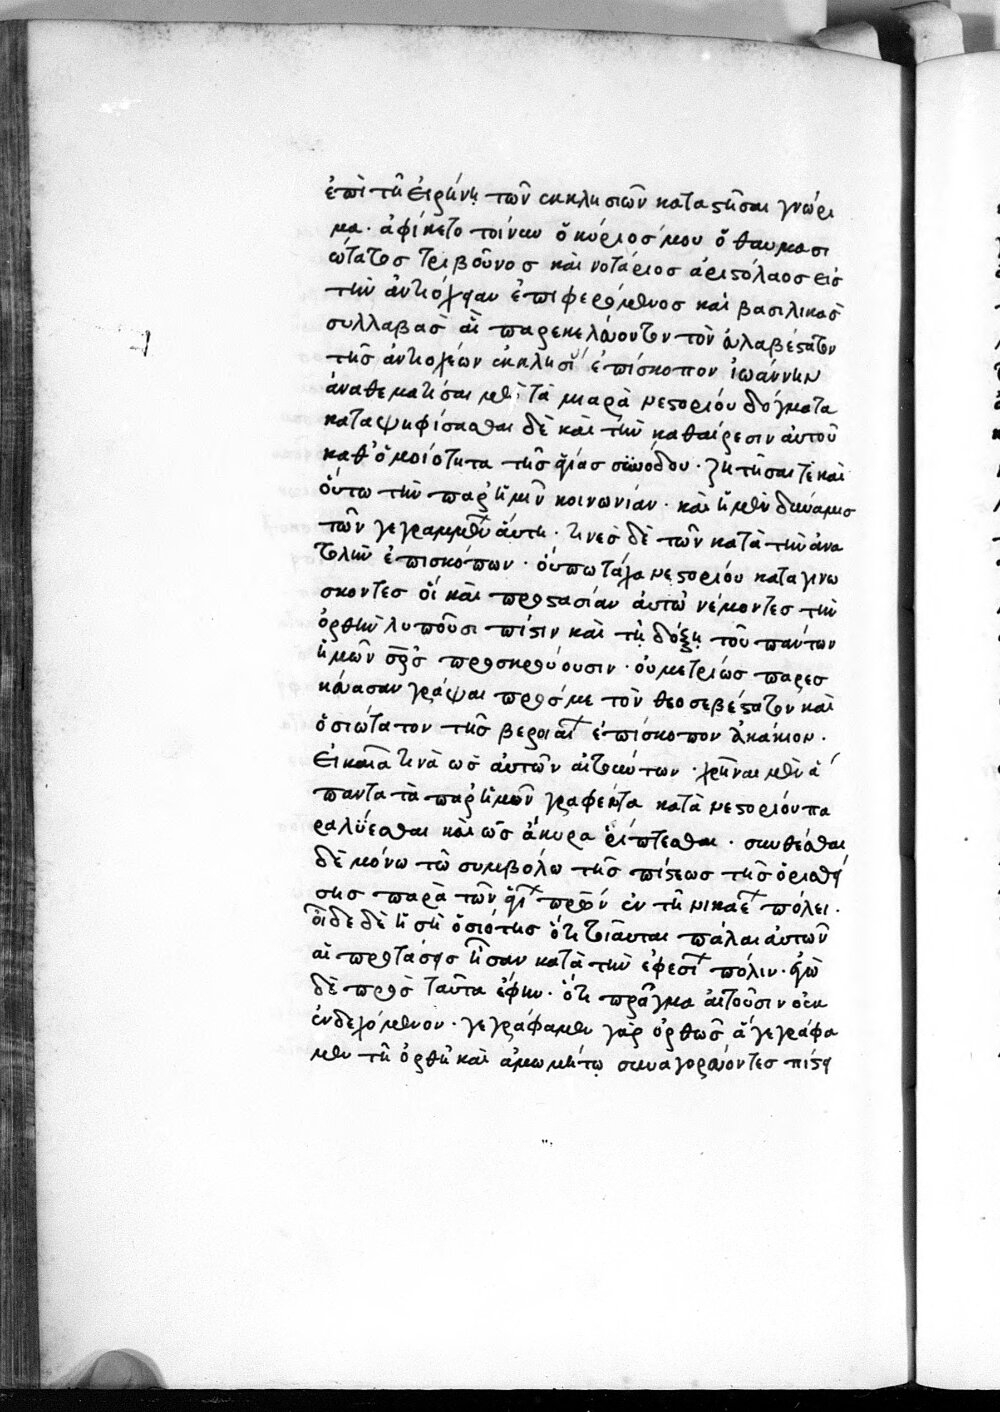 ἐπὶ τῆ εἰρήνη τῶν ἐκκλησιῶν καταστῆσαι γνώρι
μα· ἀφίκετο τοίνυν ὁ κύριός μου ὁ θαυμασι
ώτατος τριβοῦνος καὶ νοτάριος ἀριστόλαος εἰς
τὴν ἀντιόχειαν ἐπιφερόμενος καὶ βασιλικὰς
συλλαβὰς αἳ παρεκελεύοντον τὸν εὐλαβέστατον
τῆς ἀντιοχέων ἐκκλησί ἐπίσκοπον ἰωάννην
ἀναθεματίσαι μὲν τὰ μιαρὰ νεστορίου δόγματα
καταψηφίσασθαι δὲ καὶ τὴν καθαίρεσιν αὐτοῦ
καθ' ὁμοιότητα τῆς ἁγίας συνόδου· ζητῆσαί τε καὶ
οὕτω τὴν παρ' ἡμῖν κοινωνίαν· καὶ ἡ μὲν δύναμις
τῶν γεγραμμένων αὕτη· τινὲς δὲ τῶν κατὰ τὴν ἀνα
τολὴν ἐπισκόπων· οὔπω τάχα νεστορίου καταγινω
σκοντες οἳ καὶ προστασίαν αὐτῶ νέμοντες τὴν
ὀρθὴν λυποῦσι πίστιν καὶ τῆ δόξη τοῦ πάντων
ἡμῶν σρς προσκρούουσιν· οὐ μετρίως παρεσ
κεύασαν γράψαι πρός με τὸν θεοσεβέστατον καὶ
ὁσιώτατον τῆς βεροιαί ἐπίσκοπον ἀκάκιον·
εἰκαῖα τινὰ ὡς αὐτῶν αἰτούντων· χρῆναι μὲν ἅ
παντα τὰ παρ' ἡμῶν γραφέντα κατὰ νεστορίου πα
ραλύεσθαι καὶ ὡς ἄκυρα ῥίπτεσθαι· συνθέσθαι
δὲ μόνω τῶ συμβόλω τῆς πίστεως τῆς ὁρισθεί
σης παρὰ τῶν ἁγί πρων ἐν τῆ νικαέ πόλει·
οἶδε δὲ ἡ σὴ ὁσιότης ὅτι τοιαῦται πάλαι αὐτῶν
αἱ προτάσεις ἦσαν κατὰ τὴν ἐφεσί πόλιν· ἐγὼ
δὲ πρὸς ταῦτα ἔφην· ὅτι πρᾶγμα αἰτοῦσιν οὐκ
ἐνδεχόμενον· γεγράφαμεν γὰρ ὀρθῶς ἃ γεγράφα
μεν τῆ ὀρθῆ καὶ ἀμωμήτω συναγορεύοντες πίστει